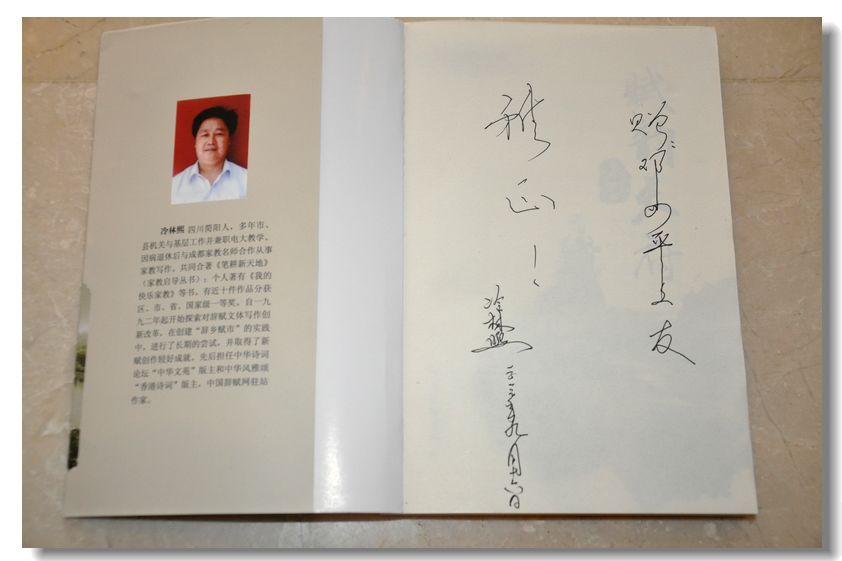 冷林熙 四川简阳人，多年市、
县机关与基层工作并兼职电大教学，
因病退休后与成都家教名师合作从事
家教写作，共同合著《笔耕新天地》
（家教启导丛书）；个人著有《我的
快乐家教》等书，有近十件作品分获
区、市、省、国家级一等奖。自一九
九二年起开始探索对辞赋文体写作创
新改革，在创建“辞乡赋市”的实践
中，进行了长期的尝试，并取得了新
赋创作较好成就，先后担任中华诗词
论坛“中华文苑”版主和中华风雅颂
“香港诗词”版主，中国辞赋网驻站
作家。
赠邓小平文友
雅正
冷林熙
二〇一三年九月十六日